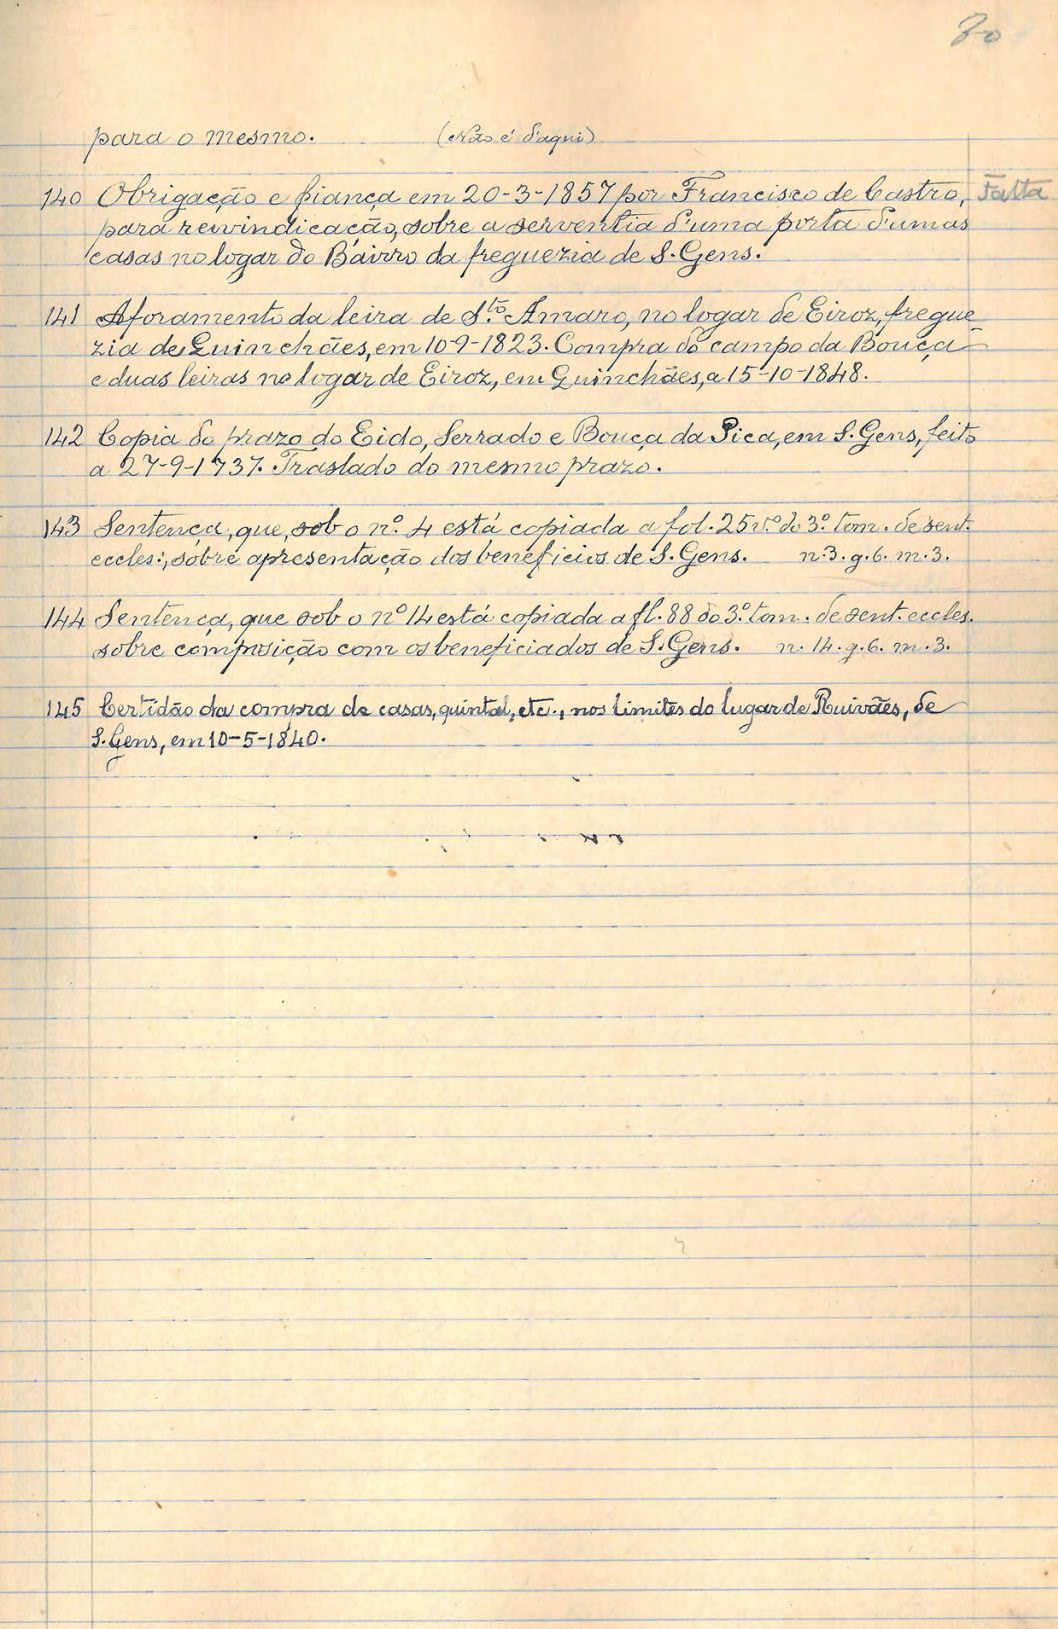 30
para o mesmo. (Não é d'aqui)
140 Obrigação e fiança em 20-3-1857 por Francisco de Castro, Falta
para reivindicação, sobre a serventia d'uma porta d'umas
casas no logar do Bairro da freguezia de S. Gens.
141 Aforamento da leira de S.to Amaro, no logar de Eiroz, fregue-
zia de Quinchães, em 10-9-1823. Compra do campo da Bouça
e duas leiras no logar de Eiroz, em Quinchães, a 15-10-1848.
142 Copia do prazo do Eido, Serrado e Bouça da Pica, em S. Gens, feito
a 27-9-1737. Traslado do mesmo prazo.
143 Sentença, que, sob o nº. 4 está copiada a fol. 25 vº. do 3º. tom. de sent.
eccles:, sobre apresentação dos beneficios de S. Gens. n. 3. g. 6. m. 3.
144 Sentença, que sob o nº 14 está copiada a fl. 88 do 3º. tom. de sent. eccles.
sobre composição com os beneficiados de S. Gens. n. 14. g. 6. m. 3.
145 Certidão da compra de casas, quintal, etc., nos limites do lugar de Ruivães, de
S. Gens, em 10-5-1840.